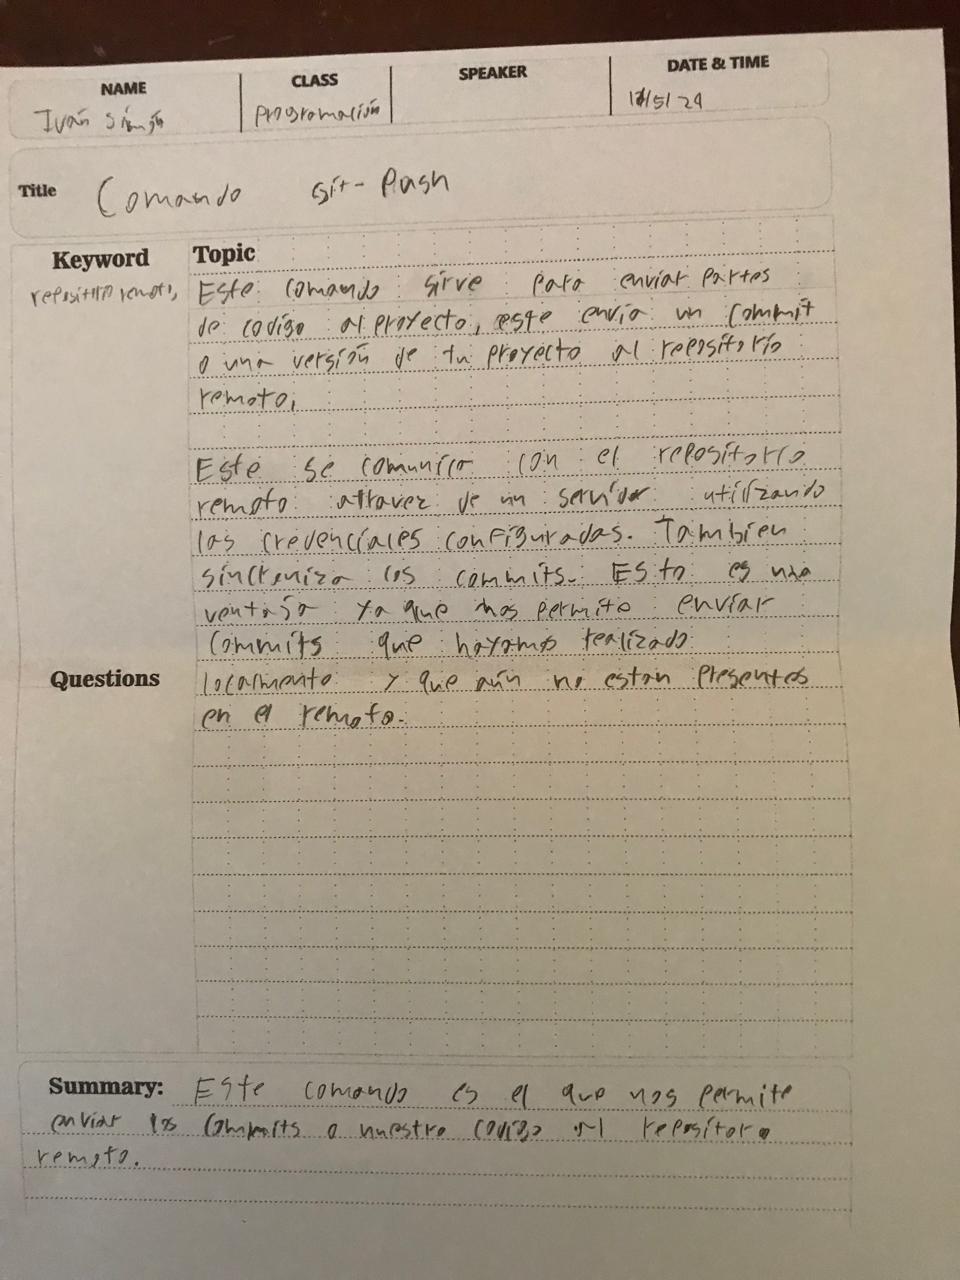 NAME CLASS SPEAKER DATE & TIME
Iván Programación /5/24
Title Comando Git-Push
Keyword Topic
repositorio remoto, Este comando sirve para enviar partes
de codigo al proyecto, este envia un commit
o una versión de tu proyecto al repositorio
remoto,
Este se comunica con el repositorio
remoto attravez de un servidor utilizando
las credenciales configuradas. Tambien
sincroniza los commits. Esto es una
ventaja ya que nos permite enviar
commits que hayamos realizado
Questions localmente y que aún no estan presentes
en el remoto.
Summary: Este comando es el que nos permite
enviar los commits o nuestro codigo al repositorio
remoto.